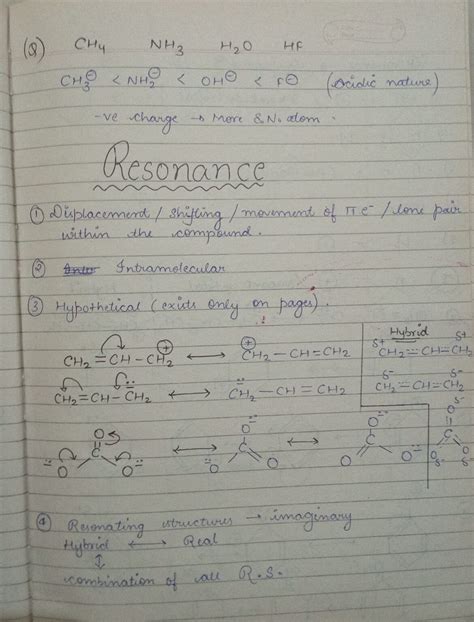 (Q) CH4 NH3 H2O HF
CH3⊖ < NH2⊖ < OH⊖ < F⊖ (Acidic nature)
-ve charge → More EN. atom.
Resonance
① Displacement / shifting / movement of πe⁻ / lone pair
within the compound.
② Intramolecular
③ Hypothetical (exists only on pages).
CH2=CH-CH2⊕ ↔ ⊕CH2-CH=CH2
CH2=CH-CH2 ↔ CH2-CH=CH2
Hybrid
δ+ δ+
CH2=CH=CH2
δ- δ-
CH2=CH=CH2
O O O ↔ O C O O ↔ O C O O
δ- O C O δ- O δ-
④ Resonating structures → imaginary
Hybrid ↔ Real
↕
combination of all R.S.